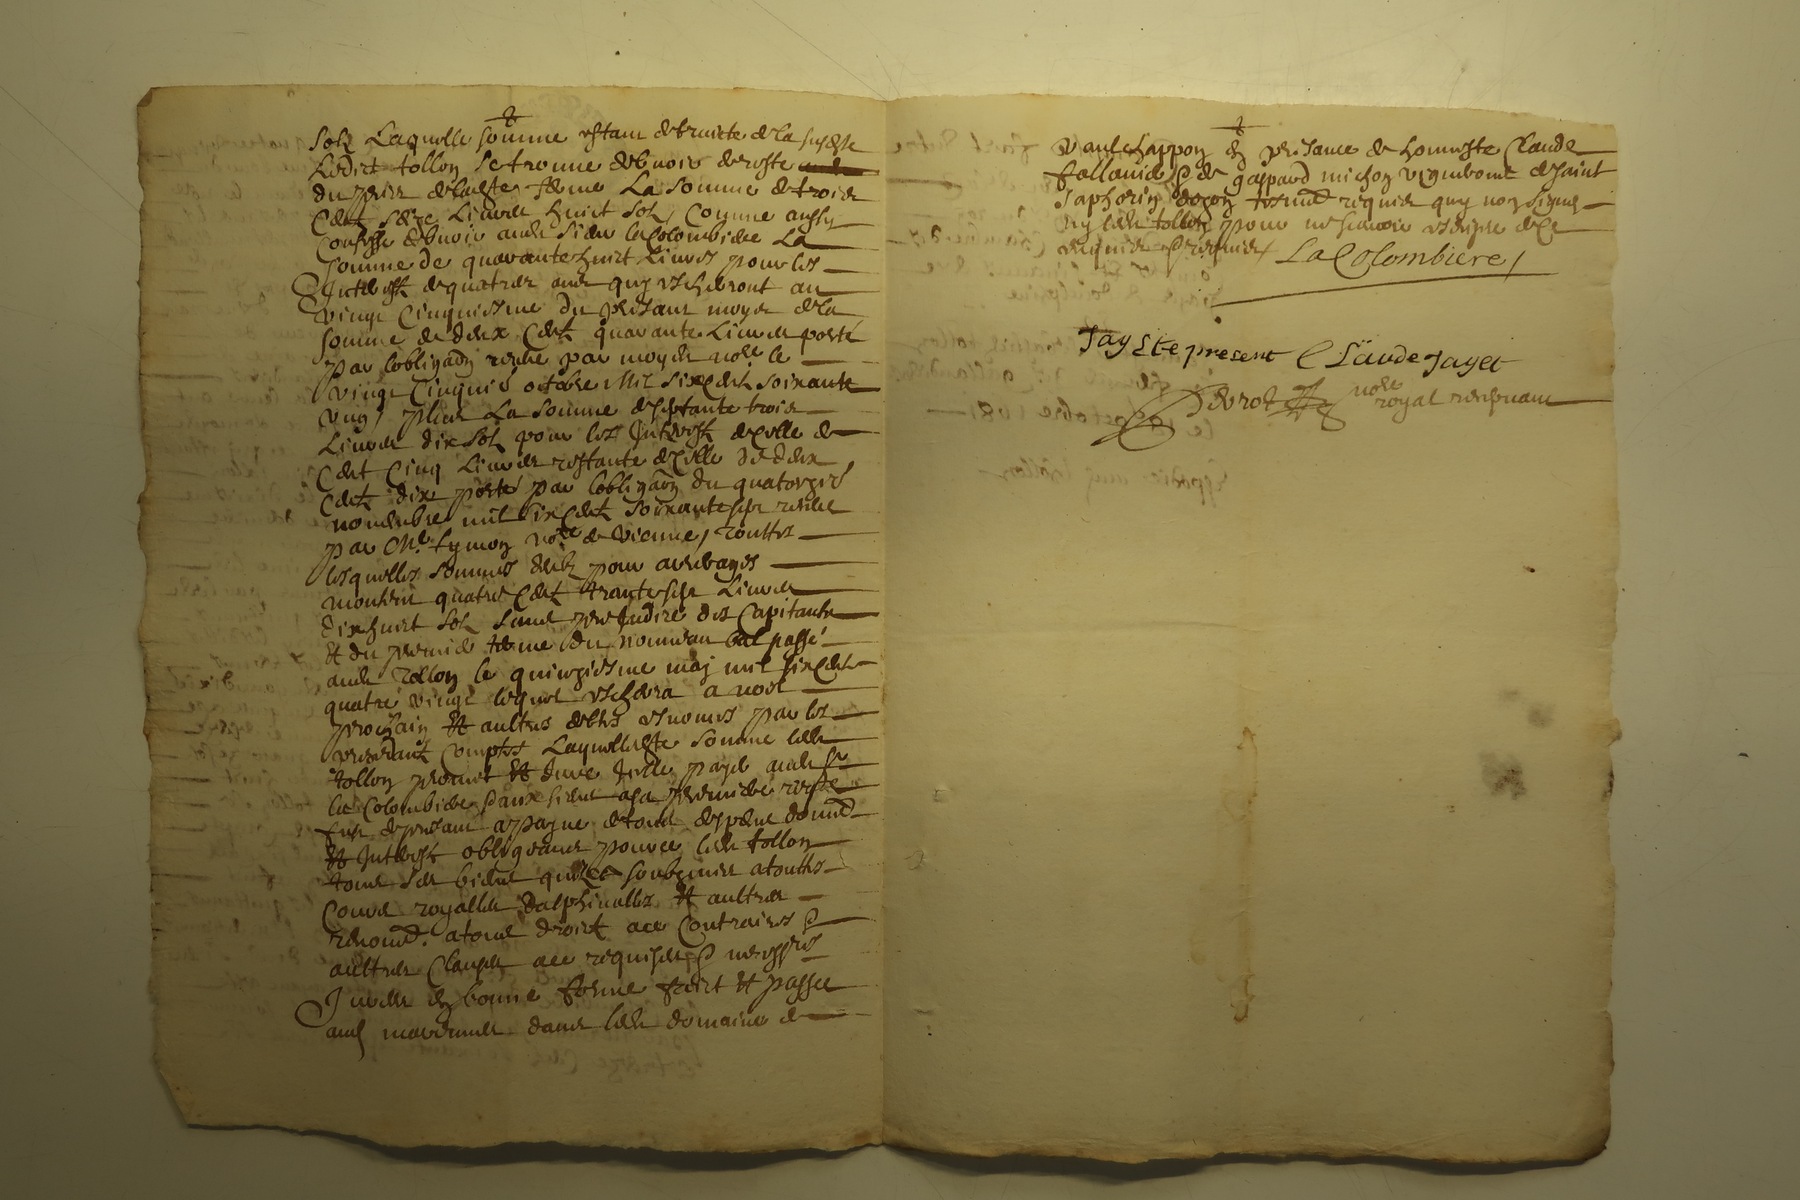 solz laquelle somme estant detruicte de la susdite
Ledict tollon se trouve debvoir de reste
du prix de ladte ferme La somme de trois
Centz seize Livres huict solz, Comme aussy
Confesse debvoir audt sieur la Colombiere La
somme de quarante huict Livres pour les
Interestz de quatre ans quy escherront au
vingt Cinquiesme du present moys de la
somme de deux Centz quarante Livres porté
par lobligaon receue par moydt nore le
vingt Cinquie octobre Mil sixcent soixante
ung, plus La somme de septante trois
Livres dix solz pour les Interestz de celle de
Cent Cinq Livres restante de celle de deux
Centz dix porté par lobligaon du quatorzie
novembre mil six Centz soixante sept receue
par Me tymon nore de vienne, touttes
lesquelles sommes pour arreyrages
montent quatre Centz trante sept Livres
dix huict solz sans prejudice des Capitaulx
et du premier terme du nouveau bail passé
audt tollon le quinziesme maj mil six cent
quatre vingt lequel eschera a noel
prochain et aultres debtes enoncés par les
precedantz Comptes Laquelle somme ledt
tollon promet et jure payer audt sr
la Colombiere
a payne de tous despens dommes
et Interestz obligeant pour ce ledt tollon
tous ses biens soubzmis a touttes
Cours royalles dalphinalles et aultres
renonce. a tous droictz a ce Contraires &
aultres Clauses a ce requises & necessres
en bonne forme faict et passé
dans ledt domaine de
vaulchappon en presance de honneste Claude
& de gaspard michon vigneron de saint
saphorin dozon tesmoings requis quy non signé
ny ledt tollon pour ne scavoir escripre de ce
requis
La Colombiere,
Jay Ste present Claude Jayet
nore royal recepvant